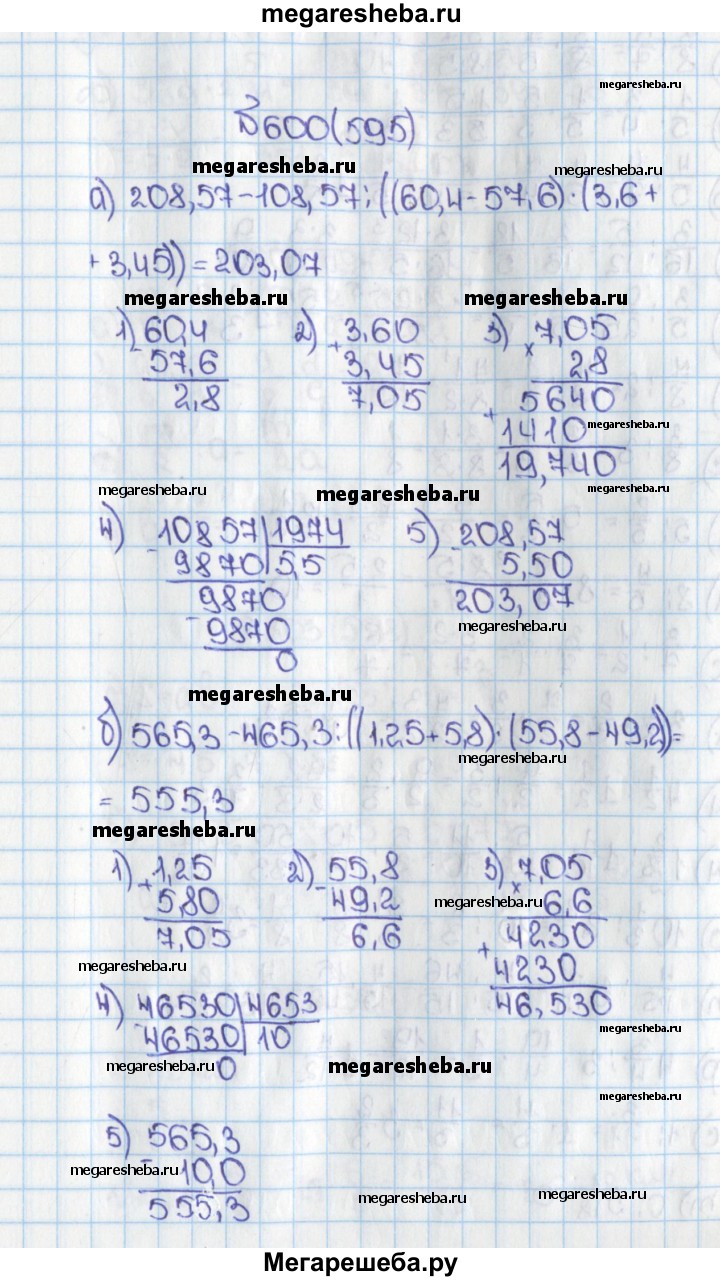 megaresheba.ru
megaresheba.ru
№600(595)
megaresheba.ru megaresheba.ru
а) 208,57-108,57:((60,4-57,6)·(3,6+
+3,45))=203,07
megaresheba.ru megaresheba.ru
1) 60,4 2) 3,60 3) 7,05
- 57,6 + 3,45 × 2,8
2,8 7,05 5640
+ 1410 megaresheba.ru
19,740
megaresheba.ru megaresheba.ru
4) 10857 1974 5) 208,57
- 9870 5,5 - 5,50
9870 203,07
- 9870 megaresheba.ru
0
megaresheba.ru
б) 565,3-465,3:((1,25+5,8)·(55,8-49,2))=
megaresheba.ru
= 555,3
megaresheba.ru
1) 1,25 2) 55,8 3) 7,05
+ 5,80 - 49,2 megaresheba.ru × 6,6
7,05 6,6 4230
megaresheba.ru + 4230
4) 46530 4653 46,530
- 46530 10 megaresheba.ru
megaresheba.ru 0 megaresheba.ru
megaresheba.ru
5) 565,3
megaresheba.ru - 10,0
555,3 megaresheba.ru megaresheba.ru
Мегарешеба.ру